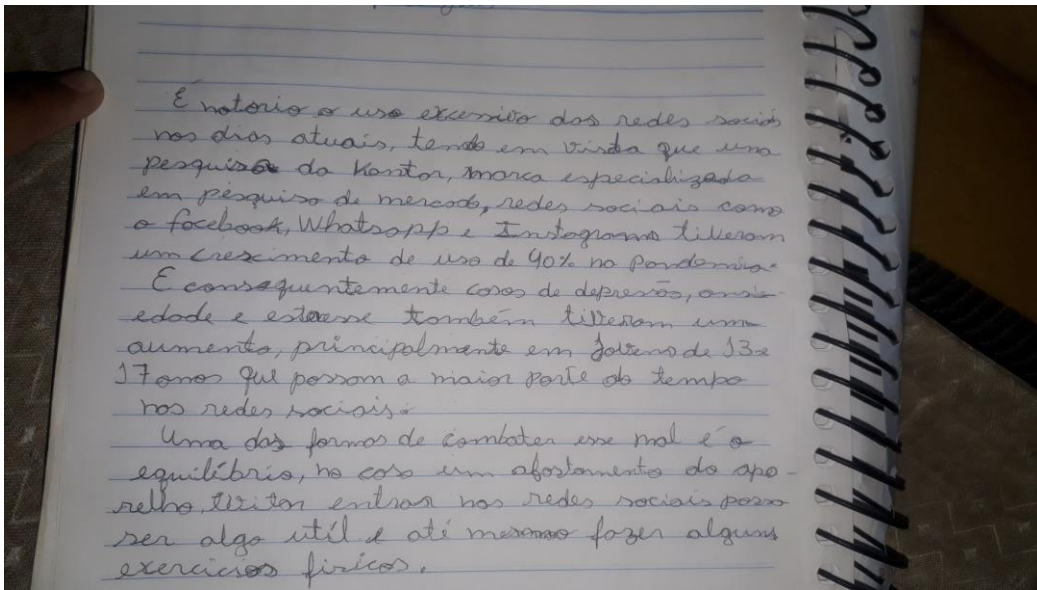 É notorio o uso excessivo das redes sociais
nos dias atuais, tendo em vista que uma
pesquisa da Kantar, marca especializada
em pesquisa de mercado, redes sociais como
o facebook, Whatsapp e Instagrama tiveram
um crescimento de uso de 40% na pandemia.
E consequentemente casos de depressão, ansi-
edade e estresse também tiveram um
aumento, principalmente em jovens de 13 a
17 anos que passam a maior parte do tempo
nas redes sociais.
Uma das formas de combater esse mal é o
equilíbrio, no caso um afastamento do apa-
relho, evitar entrar nas redes sociais possa
ser algo útil e até mesmo fazer alguns
exercicios fisicos.